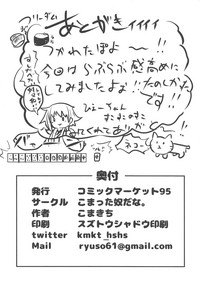 フリーダム
あとがきィィィィ
つかれたぽよ〜!!
今回はらぶらぶ感高めに
してみましたよぉ!!
たのしかったです!!
ひぇーちゃん
むにむにさこに
してくれてありが
ネコー
奥付
発行 コミックマーケット95
サークル こまった奴だな。
作者 こまきち
印刷 スズトウシャドウ印刷
twitter kmkt_hshs
Mail ryuso61@gmail.com